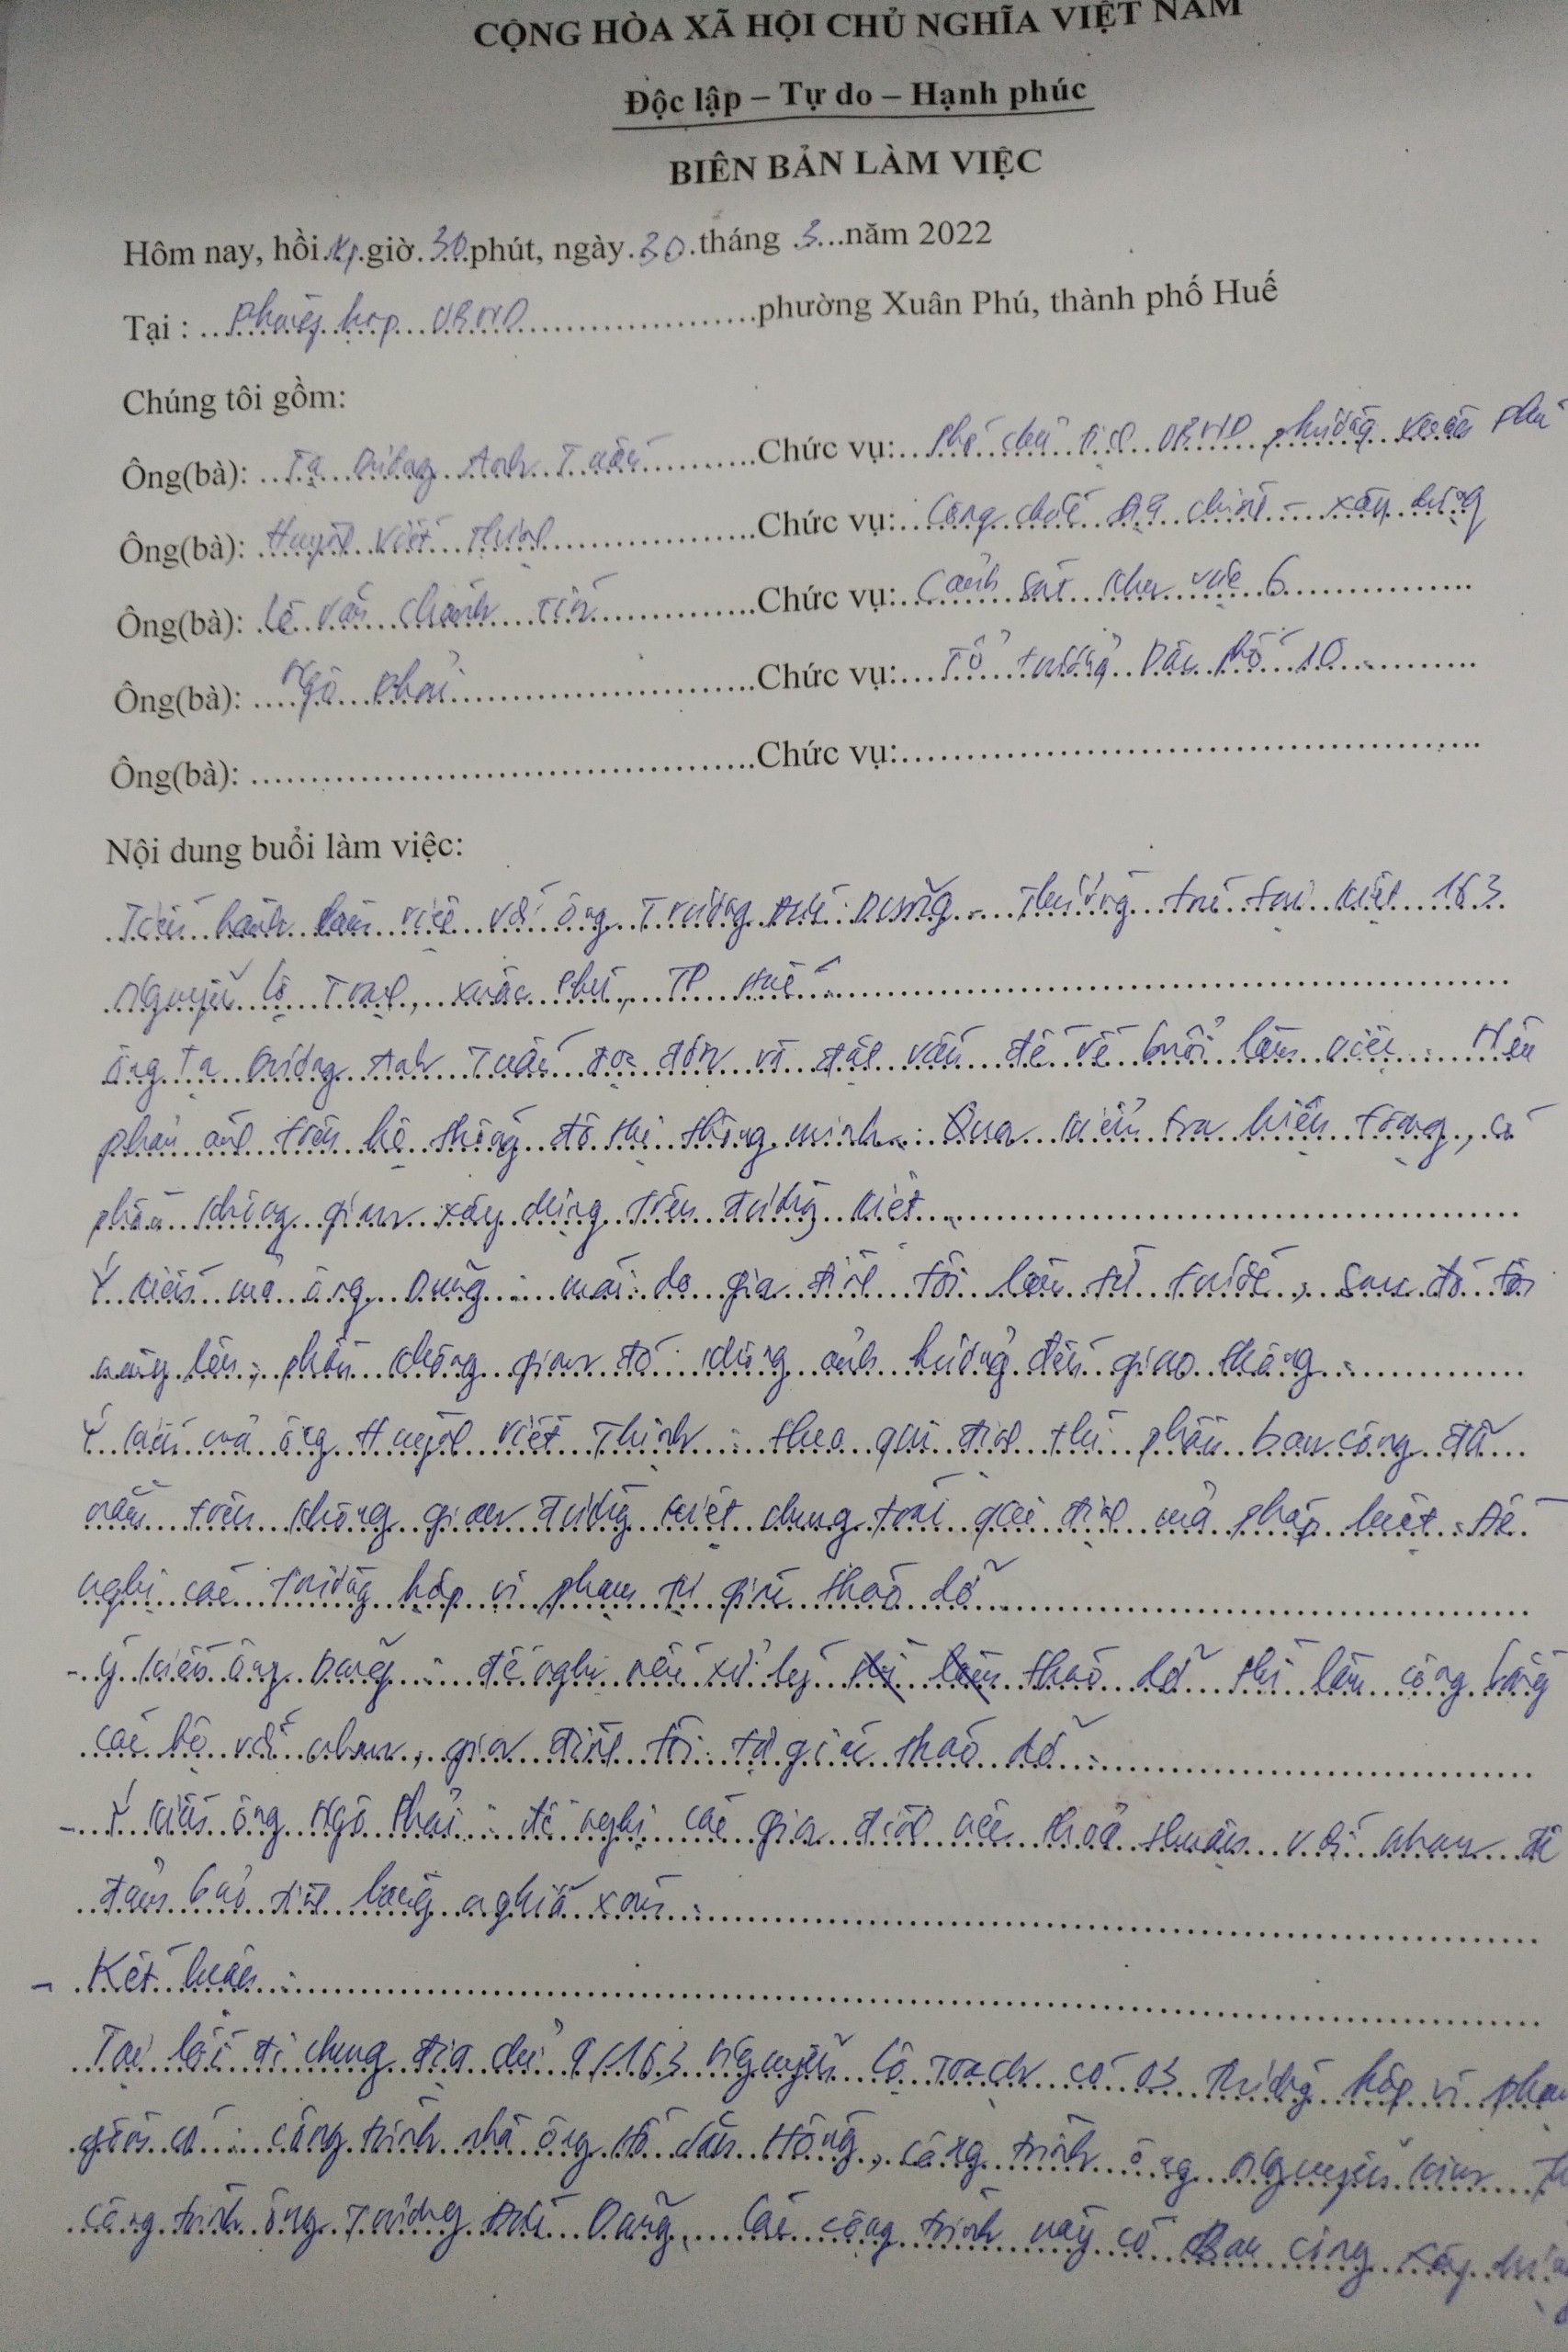 CỘNG HÒA XÃ HỘI CHỦ NGHĨA VIỆT NAM
Độc lập – Tự do – Hạnh phúc
BIÊN BẢN LÀM VIỆC
Hôm nay, hồi giờ 30 phút, ngày 30 tháng 3 năm 2022
Tại : Phòng họp UBND phường Xuân Phú, thành phố Huế
Chúng tôi gồm:
Ông(bà): Tạ Dương Anh Tuấn Chức vụ: Phó chủ tịch UBND phường Xuân Phú
Ông(bà): Huỳnh Viết Thịnh Chức vụ: Công chức địa chính – xây dựng
Ông(bà): Lê Văn Chánh Tín Chức vụ: Cảnh sát khu vực 6
Ông(bà): Ngô Phải Chức vụ: Tổ trưởng Dân phố 10
Ông(bà): Chức vụ:
Nội dung buổi làm việc:
Tiến hành làm việc với ông Trương Dũng - Thường trú tại kiệt 163
Nguyễn Lộ Trạch, Xuân Phú, TP Huế
Ông Tạ Dương Anh Tuấn và đặt vấn đề về buổi làm việc.
phản ánh trên hệ thống đô thị thông minh. Qua kiểm tra hiện trạng, có
phần không gian xây dựng trên đường kiệt.
Ý kiến của ông Dũng : mái do gia đình tôi làm từ trước, sau đó tôi
nâng lên, phần không gian đó không ảnh hưởng đến giao thông.
Ý kiến của ông Huỳnh Viết Thịnh : theo qui định thì phần ban công đã
nằm trên không gian đường kiệt chung trái qui định của pháp luật. Đề
nghị các trường hợp vi phạm tự giác tháo dỡ
- Ý kiến ông Dũng : đề nghị nếu xử lý tháo dỡ thì làm công bằng
các hộ với nhau, gia đình tôi tự giác tháo dỡ.
- Ý kiến ông Ngô Phải : đề nghị các gia đình nên thoả thuận với nhau để
đảm bảo tình làng nghĩa xóm.
- Kết luận :
Tại lối đi chung địa chỉ 9/163 Nguyễn Lộ Trạch có 03 trường hợp vi phạm
gồm có : công trình nhà ông Hồ Hồng, công trình ông Nguyễn Kim
công trình ông Trương Dũng. Các công trình này có Ban công xây dựng